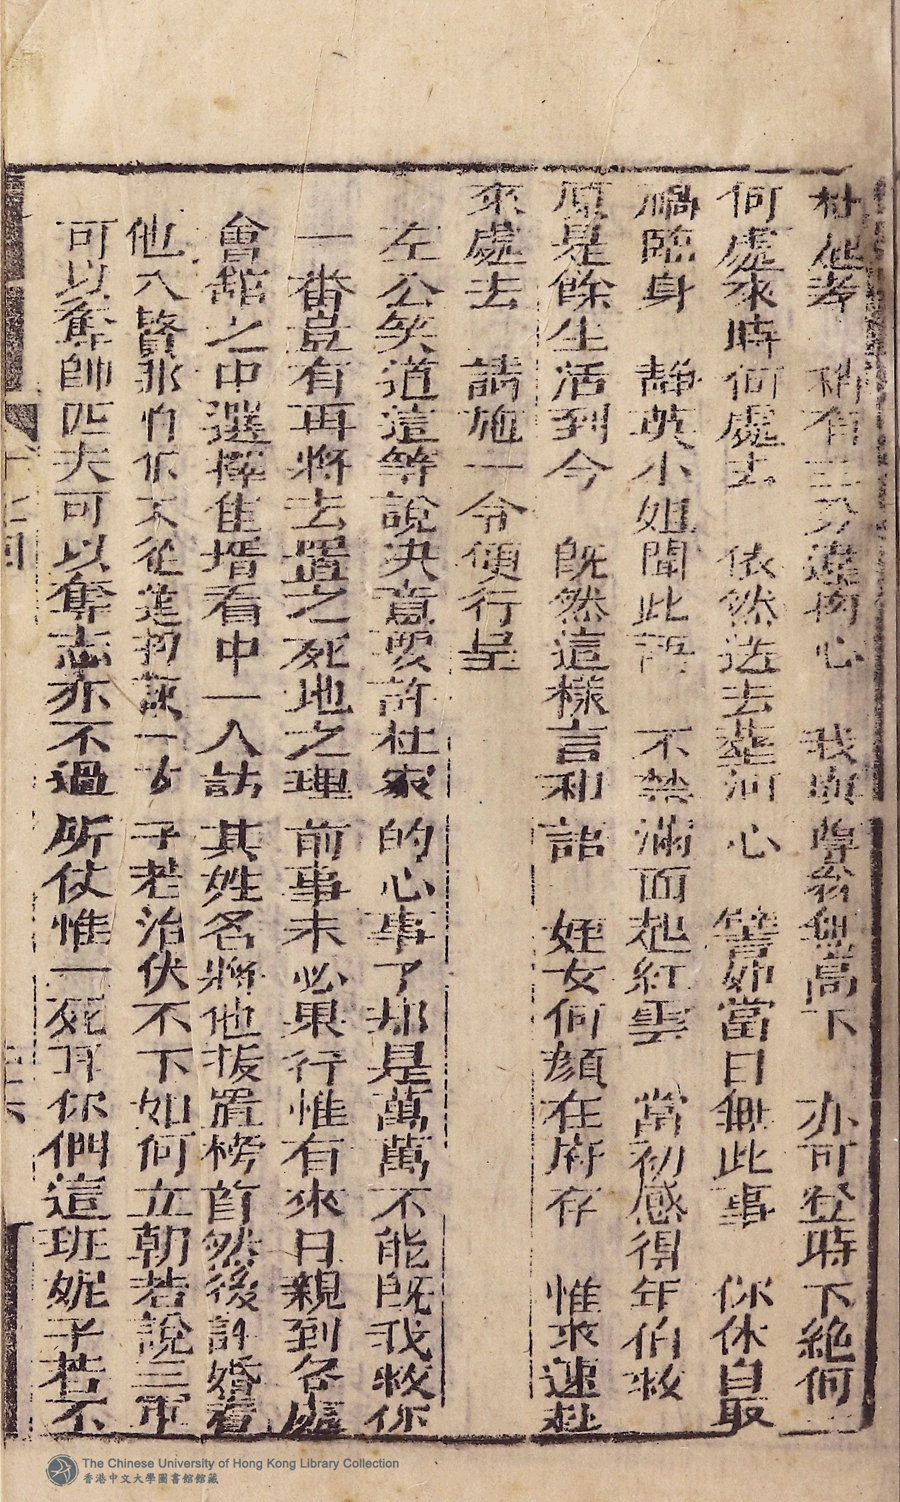 杜他孝　稍有三分違拘心　我與尊翁無高下　亦可登時下絕何
何處來時何處去　依然送去葬河心　譬如當日無此事　你休自取
禍臨身　靜英小姐聞此語　不禁滿面起紅雲　當初感得年伯救
原是餘生活到今　既然這樣言和語　姪女何顏在府存　惟求速赴
來處去　請施一令便行呈
左公笑道這等說决意要許杜家的心事了却是萬萬不能既我救你
一番豈有再將去置之死地之理前事未必果行惟有來日親到各處
會館之中選擇隹壻看中一人訪其姓名將他拔置榜首然後許婚看
他入贅那怕你不從進招說一女子若治伏不下如何立朝若說三軍
可以奪帥匹夫可以奪志亦不過所仗惟一死耳你們這班妮子若不
The Chinese University of Hong Kong Library Collection
香港中文大學圖書館館藏